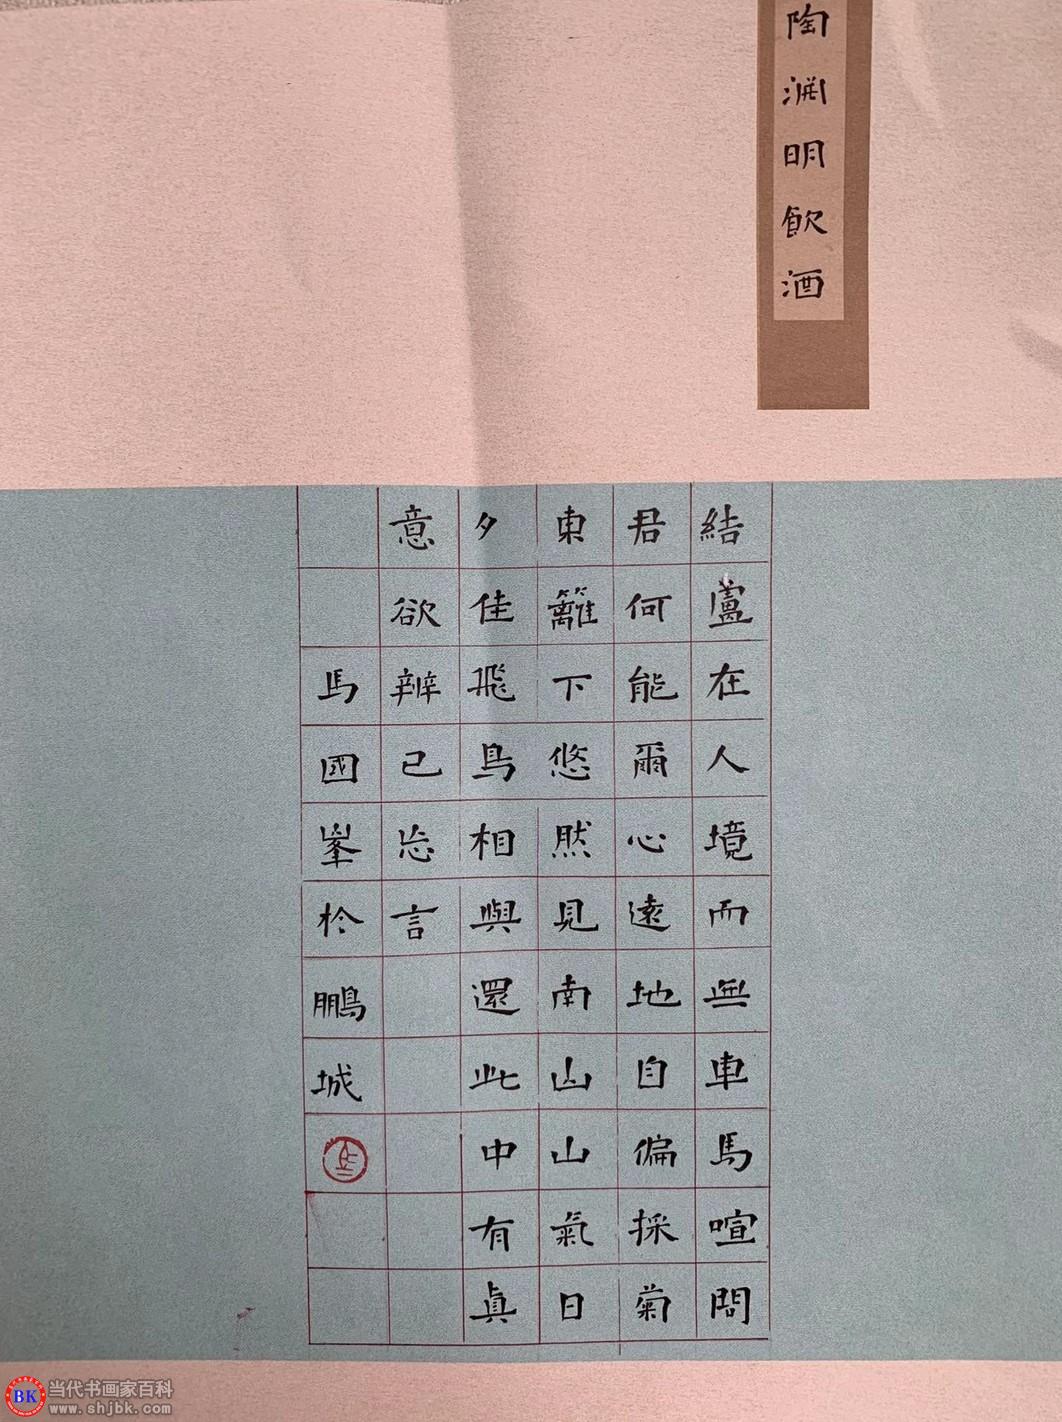 陶渊明飲酒
結蘆在人境而無車馬喧問
君何能爾心遠地自偏採菊
東籬下悠然見南山山氣日
夕佳飛鳥相與還此中有真
意欲辨已忘言
馬國峯於鵬城
BK 当代书画家百科
www.shjbk.com